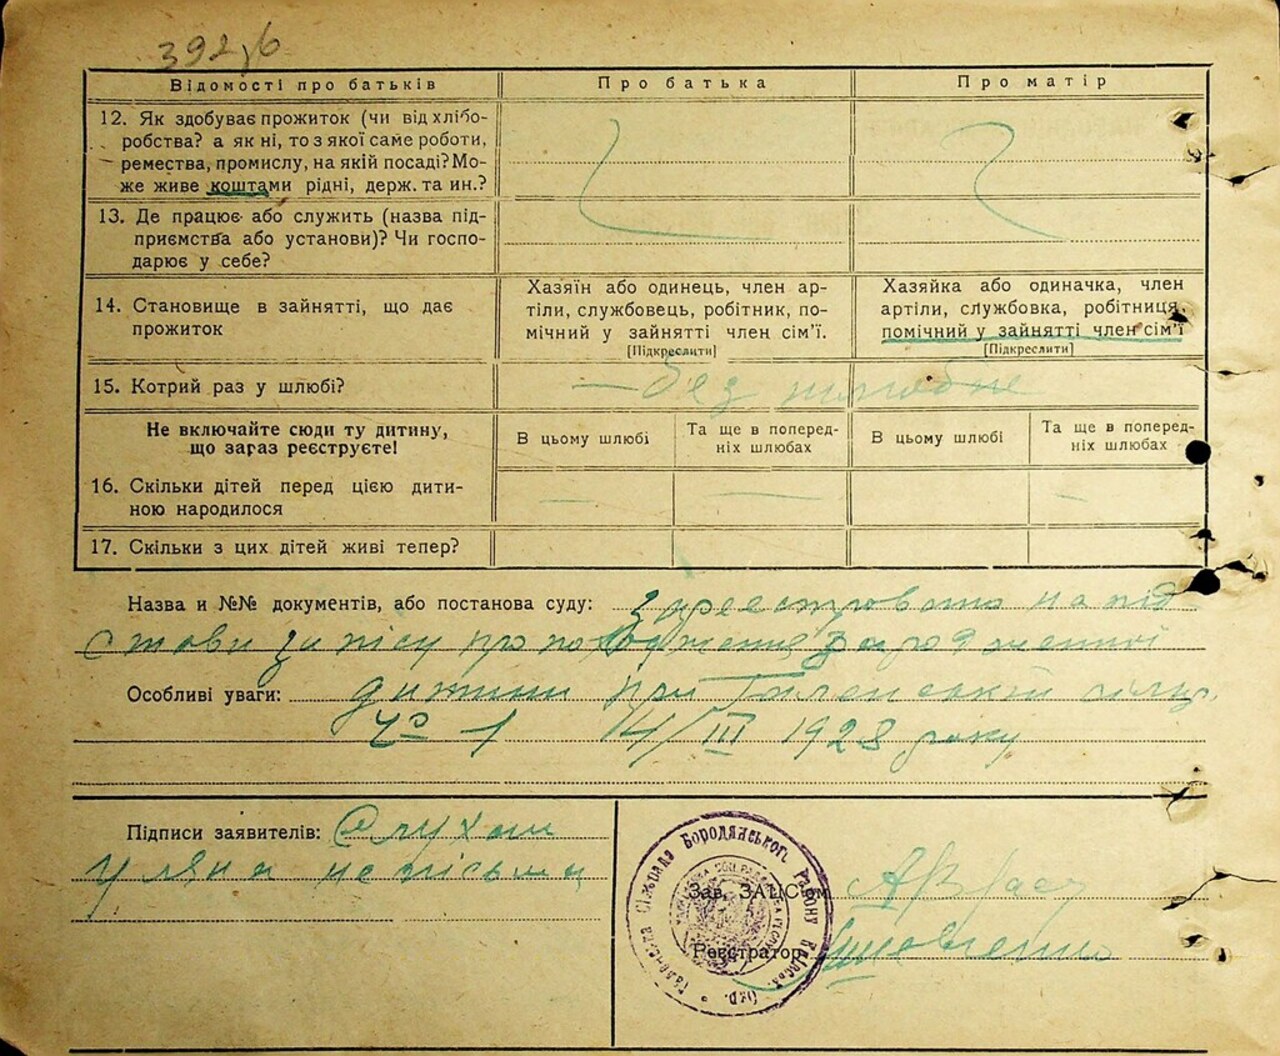 392,6
Відомості про батьків
Про батька
Про матір
12. Як здобуває прожиток (чи від хлібо-
робства? а як ні, то з якої саме роботи,
ремества, промислу, на якій посаді? Мо-
же живе коштами рідні, держ. та ин.?
13. Де працює або служить (назва під-
приємства або установи)? Чи госпо-
дарює у себе?
14. Становище в зайнятті, що дає
прожиток
Хазяїн або одинець, член ар-
тіли, службовець, робітник, по-
мічний у зайнятті член сім’ї.
[Підкреслити]
Хазяйка або одиначка, член
артіли, службовка, робітниця,
помічний у зайнятті член сім’ї
[Підкреслити]
15. Котрий раз у шлюбі?
— без шлюбне
Не включайте сюди ту дитину,
що зараз реєструєте!
В цьому шлюбі
Та ще в поперед-
ніх шлюбах
В цьому шлюбі
Та ще в поперед-
ніх шлюбах
16. Скільки дітей перед цією дити-
ною народилося
17. Скільки з цих дітей живі тепер?
Назва и №№ документів, або постанова суду: Зареєстровано на під
стови запису про походження зародженної
Особливі уваги: дитини при
№ 1 14/III 1928 року
Підписи заявителів:
Уляна неписьма
Сільрада Бородянського Району Київськ. Окр.
Зав. ЗАЦС'ом
Реєстратор